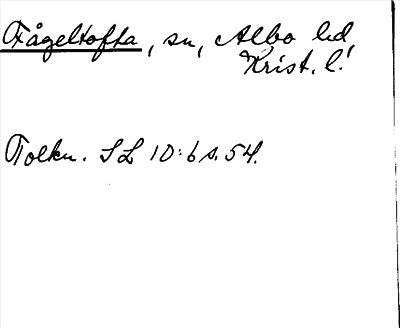 Fågeltofta, sn, Albo hd,
Krist. l.
Tolkn. SL 10:6 s. 54.